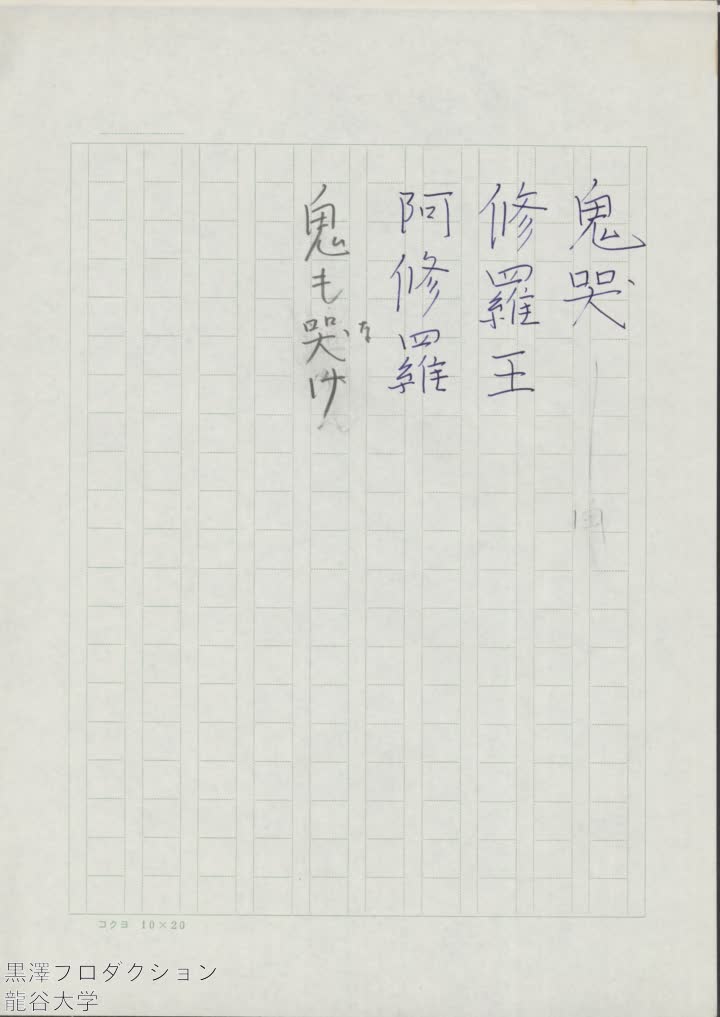 鬼哭
修羅王
阿修羅
鬼も哭け
な
コクヨ 10×20
黒澤プロダクション
龍谷大学